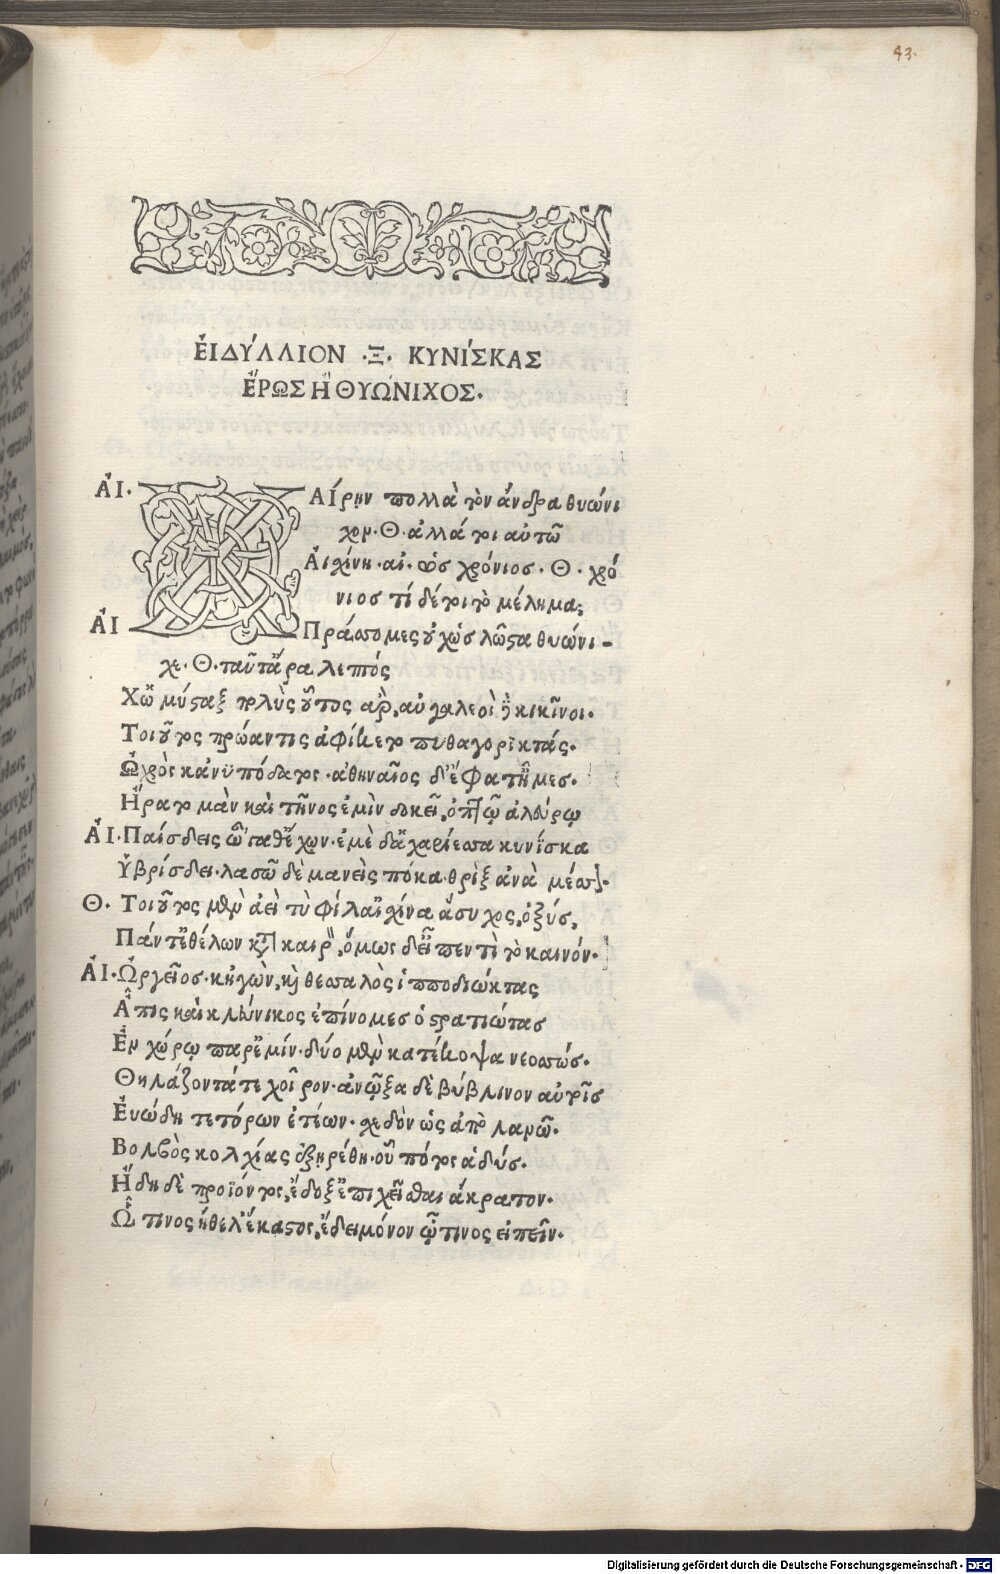 43.
ἘΙΔΎΛΛΙΟΝ ·Ξ· ΚΥΝΊΣΚΑΣ
ἜΡΩΣ Ἢ ΘΥΏΝΙΧΟΣ·
ἈΙ· ΧΑΊρην πολλὰ τὸν ἄνδρα θυώνι
χον· Θ· ἀλλά τοι αὐτῶ
Ἀιχίνη· αἰ· ὡς χρόνιος· Θ· χρό
νιος τί δέ τοι τὸ μέλημα;
ἈΙ Πράσσομες ὀυχ ὡς λῶστα θυώνι-
χε· Θ· ταῦτ' ἄρα λεπτός
Χὤ μύσταξ πολὺς οὗτος αὐσταλεοὶ κικῖνοι·
Τοιοῦτος πρώαν τις ἀφίκετο πυθαγορικτάς·
Ὠχρὸς κἀνυπόδατος· ἀθηναῖος δ' ἔφατ' ἦμες·
Ἤρατο μὰν καὶ τῆνος ἐμὶν δοκεῖ, ὀπτῶ ἀλεύρω
ἈΙ· Παίσδεις ἔχων· ἐμὲ δ' ἁ χαρίεσσα κυνίσκα
Ὑβρίσδει· λασῶ δὲ μανεὶς πόκα· θρὶξ ἀνὰ μέσσον·
Θ· Τοιοῦτος μὲν ἀεὶ τὺ φίλ' αἰχίνα ἄσυχος, ὀξύς,
Πάντ' ἐθέλων κατὰ καιρόν, ὅμως δ' εἶπεν τὶ τὸ καινόν·
ἈΙ· Ὡργεῖος· κἠγών, καὶ θεσσαλὸς ἱπποδιώκτας
Ἆπις καὶ κλεύνικος ἐπίνομες ὁ στρατιώτας
Ἐν χώρῳ παρ' ἐμίν· δύο μὲν κατέκοψα νεοσσώς·
Θηλάζοντά τε χοῖρον· ἀνῷξα δὲ βύβλινον αὐτοῖς
Ἐυώδη τετόρων ἐτέων· σχεδὸν ὡς ἀπὸ λανῶ·
Βολβὸς κολχίας ἐξῃρέθη· οὗ πότος ἁδύς·
Ἤδη δὲ προϊόντος, ἔδοξ' ἐπιχεῖσθαι ἄκρατον·
Ὧτινος ἤθελ' ἕκαστος, ἔδει μόνον ᾧτινος εἰπεῖν·
Digitalisierung gefördert durch die Deutsche Forschungsgemeinschaft - DFG